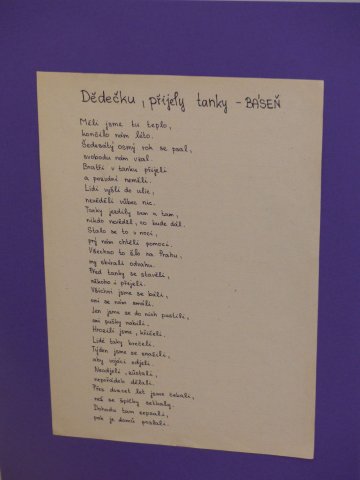 Dědečku, přijely tanky - BÁSEŇ
Měli jsme tu teplo,
končilo nám léto.
Šedesátý osmý rok se psal,
svobodu nám vzal.
Bratři v tanku přijeli
a pozvání neměli.
Lidi vyšli do ulic,
nevěděli vůbec nic.
Tanky jezdily sem a tam,
nikdo nevěděl, co bude dál.
Stalo se to v noci,
prý nám chtěli pomoci.
Všechno to šlo na Prahu.
my sbírali odvahu.
Před tanky se stavěli,
někoho i přejeli.
Všichni jsme se báli,
oni se nám smáli.
Jen jsme se do nich pustili,
oni pušky nabili.
Hrozili jsme, křičeli.
Lidé taky brečeli.
Týden jsme se snažili,
aby vojáci odjeli.
Neodjeli, zůstali,
nepořádek dělali.
Přes dvacet let jsme čekali,
než se špičky setkaly.
Dohodu tam sepsali,
pak je domů poslali.